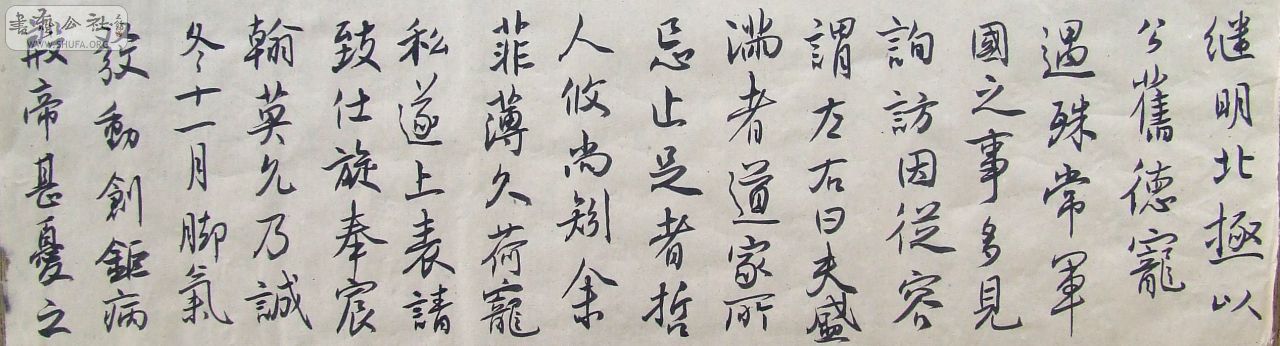 继明北極以
公舊德寵
遇殊常軍
國之事多見
詢訪因從容
謂左右曰夫盛
滿者道家所
忌止足者哲
人攸尚矧余
菲薄久荷寵
私遂上表請
致仕旋奉宸
翰莫允乃誠
冬十一月脚氣
發動創鉅病
殷帝甚憂之
書法公社
WWW.SHUFA.ORG